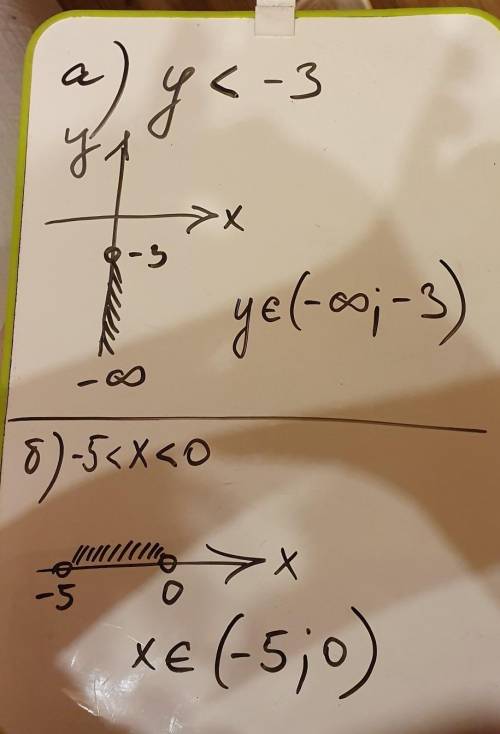 а) y < -3
y
x
-3
y∈(-∞; -3)
-∞
б) -5<x<0
x
-5 0
x∈(-5; 0)